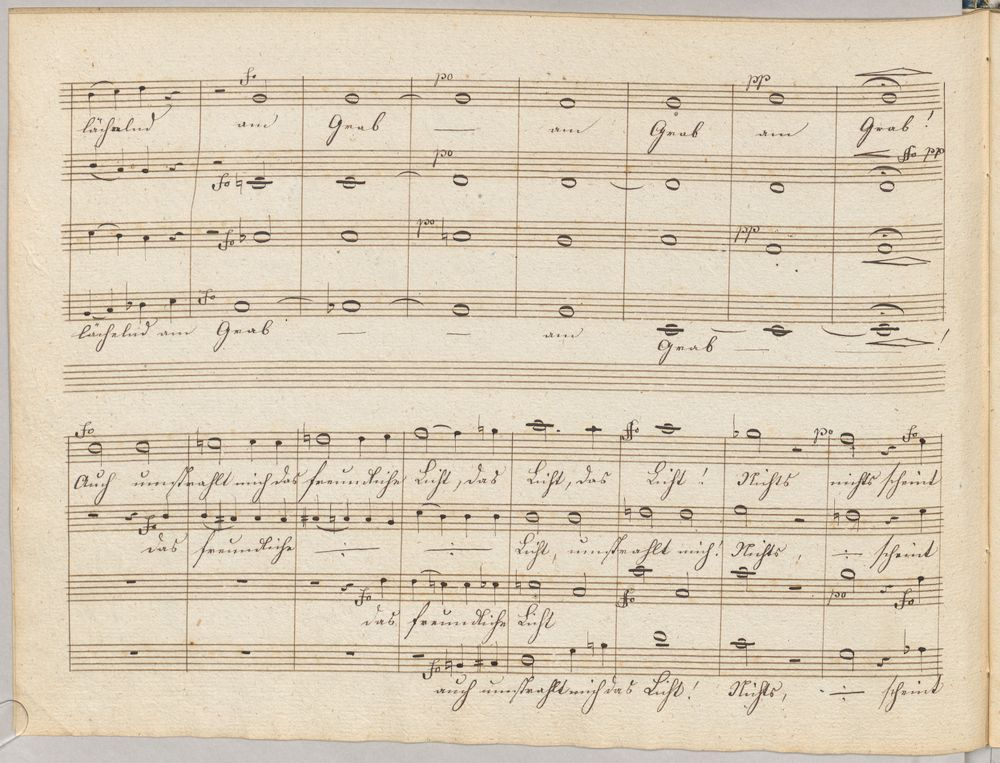 fo po pp
lächelnd am Grab — am Grab am Grab!
po ffo pp
fo
po pp
fo
fo
lächelnd am Grab — — am Grab — — !
fo ffo po fo
Auch umstrahlt mich das freundliche Licht, das Licht, das Licht! Nichts nichts scheint
fo
das freundliche Licht, umstrahlt mich! Nichts, scheint
fo ffo po fo
das freundliche Licht
fo
auch umstrahlt mich das Licht! Nichts, scheint